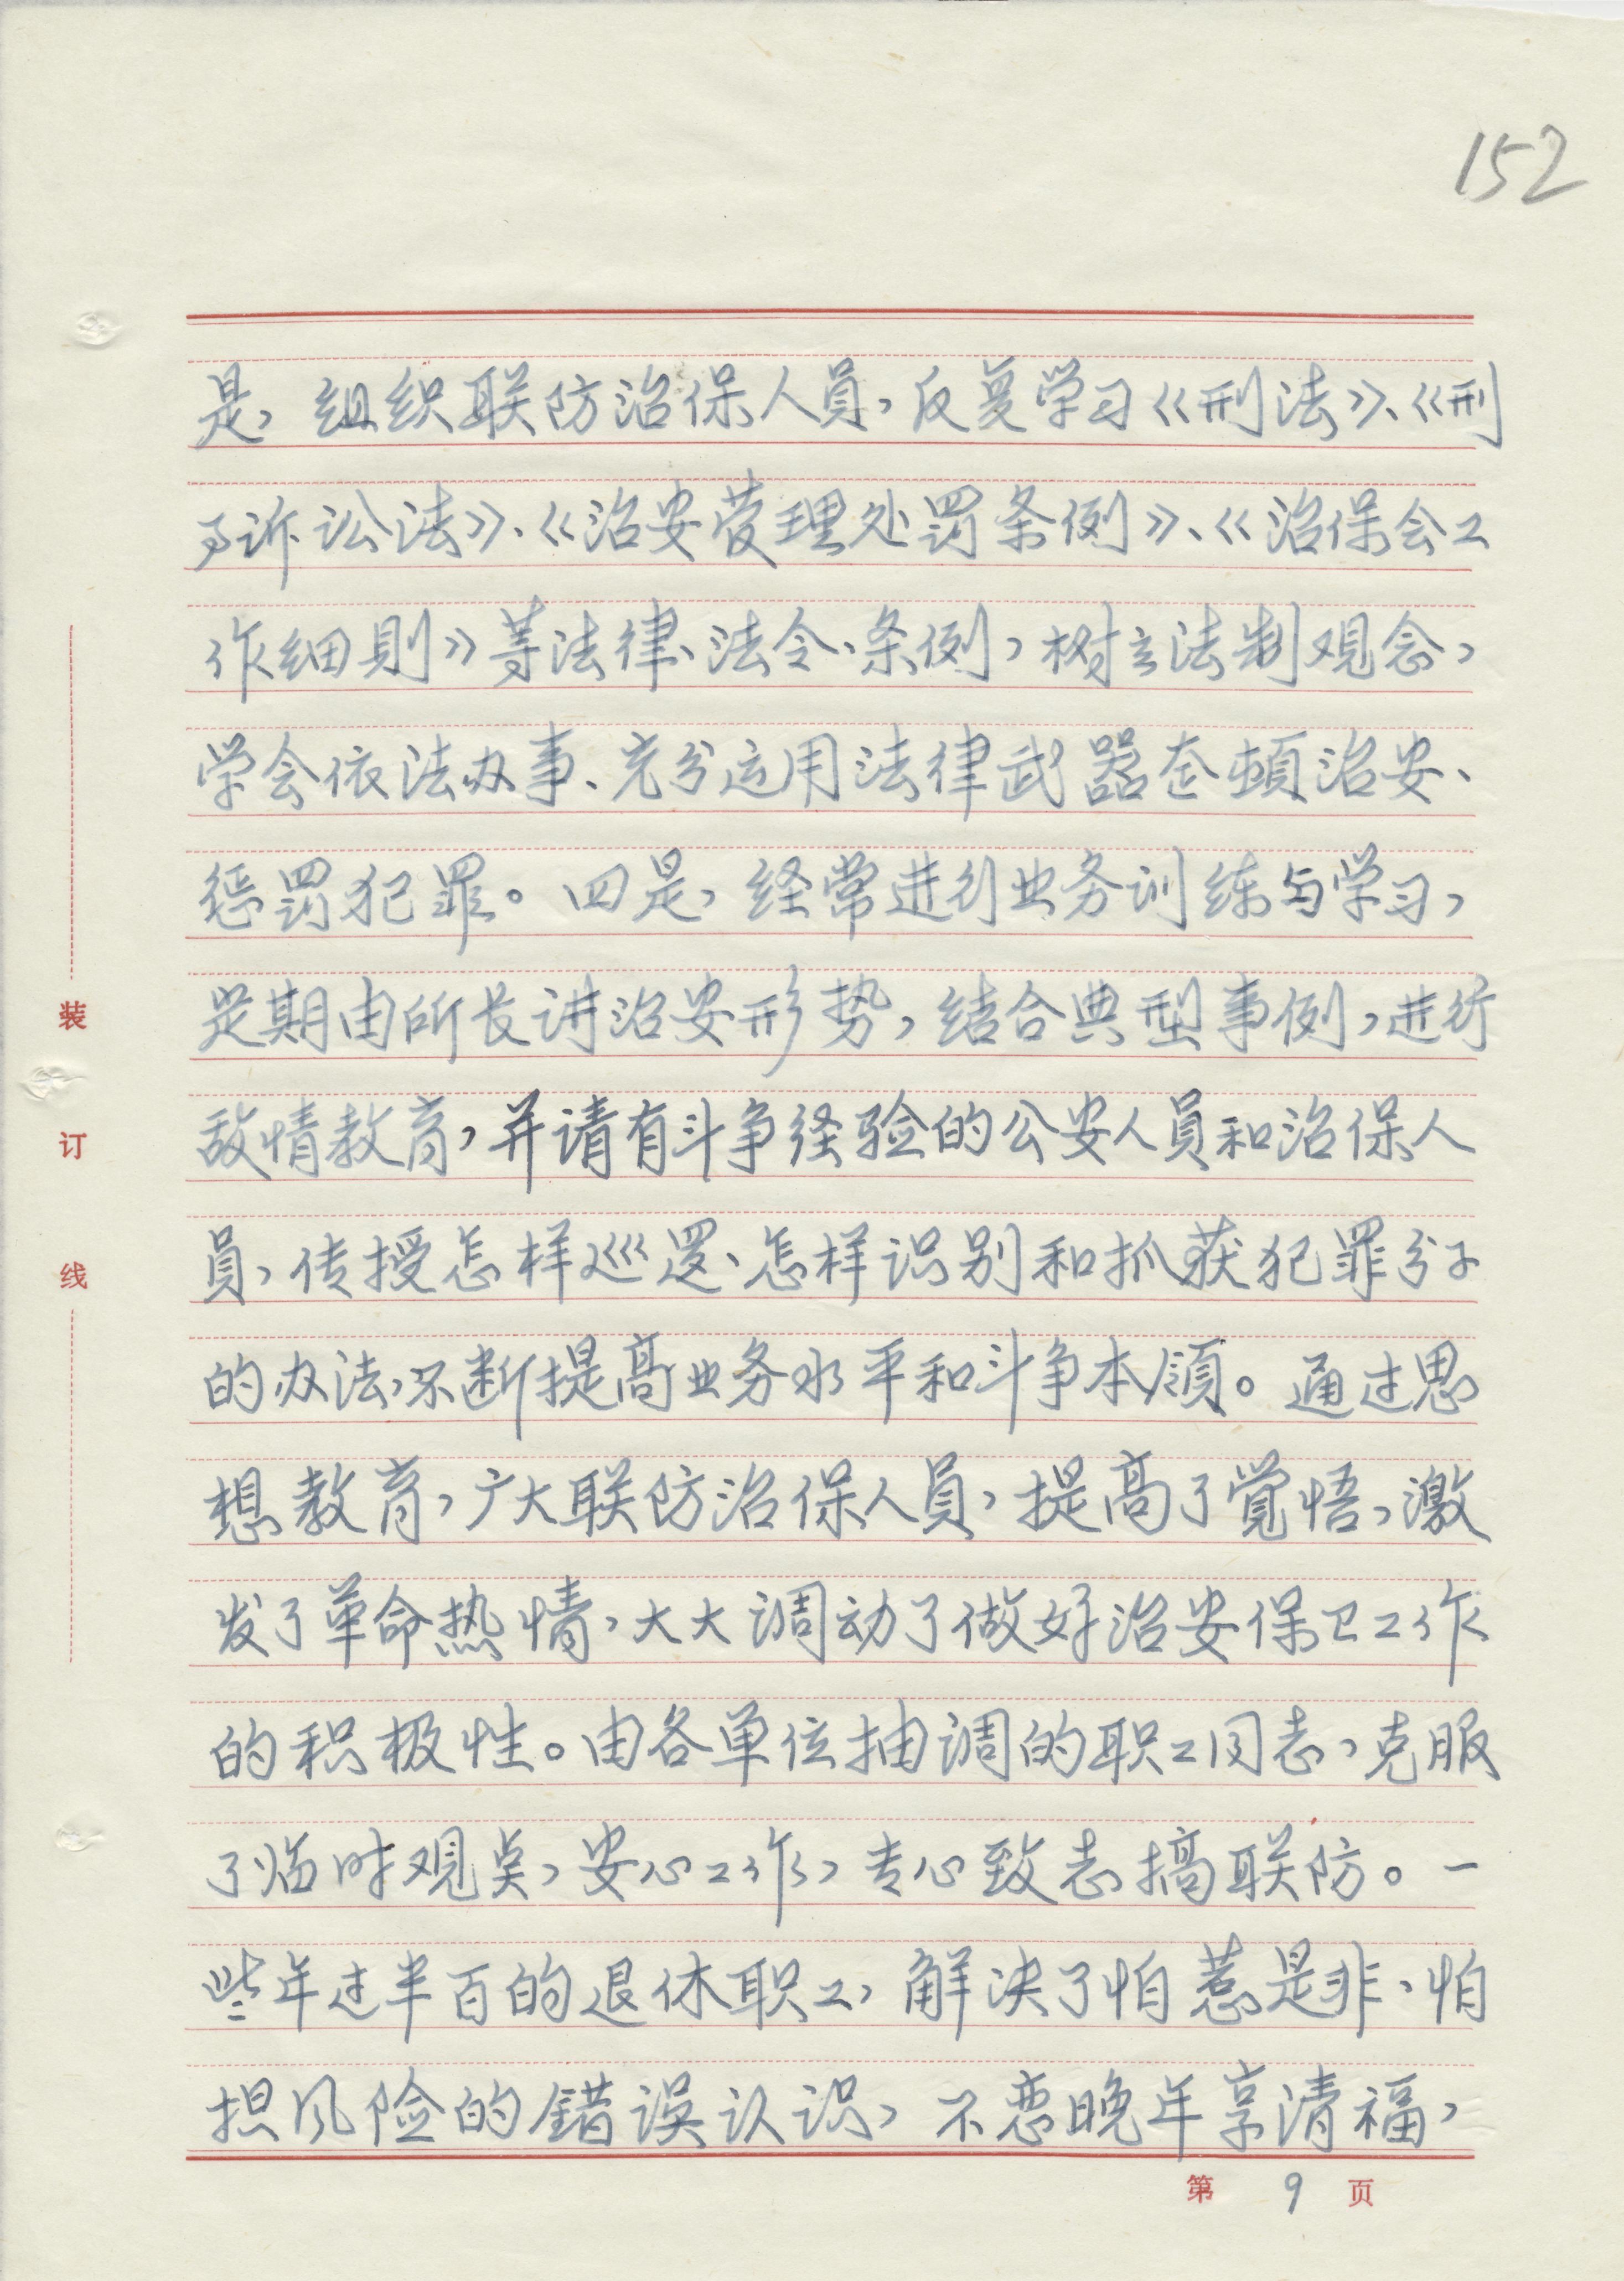 152
是，组织联防治保人员，反复学习《刑法》、《刑
事诉讼法》、《治安管理处罚条例》、《治保会工
作细则》等法律、法令、条例，树立法制观念，
学会依法办事、充分运用法律武器整顿治安、
惩罚犯罪。四是，经常进行业务训练与学习，
定期由所长讲治安形势，结合典型事例，进行
敌情教育，并请有斗争经验的公安人员和治保人
员，传授怎样巡逻、怎样识别和抓获犯罪分子
的办法，不断提高业务水平和斗争本领。通过思
想教育，广大联防治保人员，提高了觉悟，激
发了革命热情，大大调动了做好治安保卫工作
的积极性。由各单位抽调的职工同志，克服
了临时观点，安心工作，专心致志搞联防。一
些年过半百的退休职工，解决了怕惹是非、怕
担风险的错误认识，不恋晚年享清福，
装
订
线
第 9 页